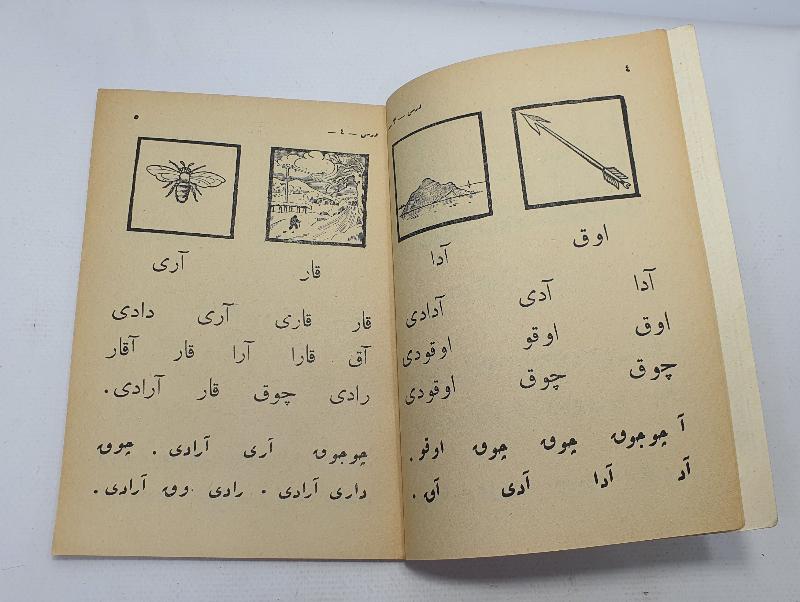 ٤
درس – ٣ –
اوق
آدا
آدا آدی آدادی
اوق اوقو اوقودی
چوق چوق اوقودی
آ چوجوق چوق چوق اوقو .
آد آدا آدی آق .
٥
درس – ٤ –
قار
آری
قار قاری آری دادی
آق قارا آرا قار آقار
رادی چوق قار آرادی .
چوجوق آری آرادی . چوق
داری آرادی . رادی وق آرادی .